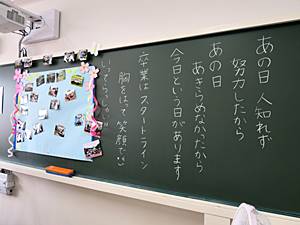 あの日 人知れず
努力したから
あの日
あきらめなかったから
今日という日があります
卒業はスタートライン
胸をはって 笑顔で
いってらっしゃい